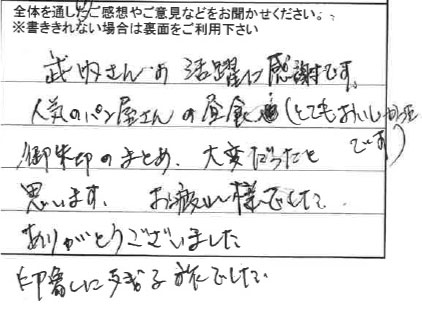 全体を通したご感想やご意見などをお聞かせください。
※書ききれない場合は裏面をご利用下さい
武内さんの活躍に感謝です。
人気のパン屋さんの昼食(とてもおいしかったです)
御朱印のまとめ、大変だったと
思います。お疲れ様でした。
ありがとうございました
印象に残る旅でした